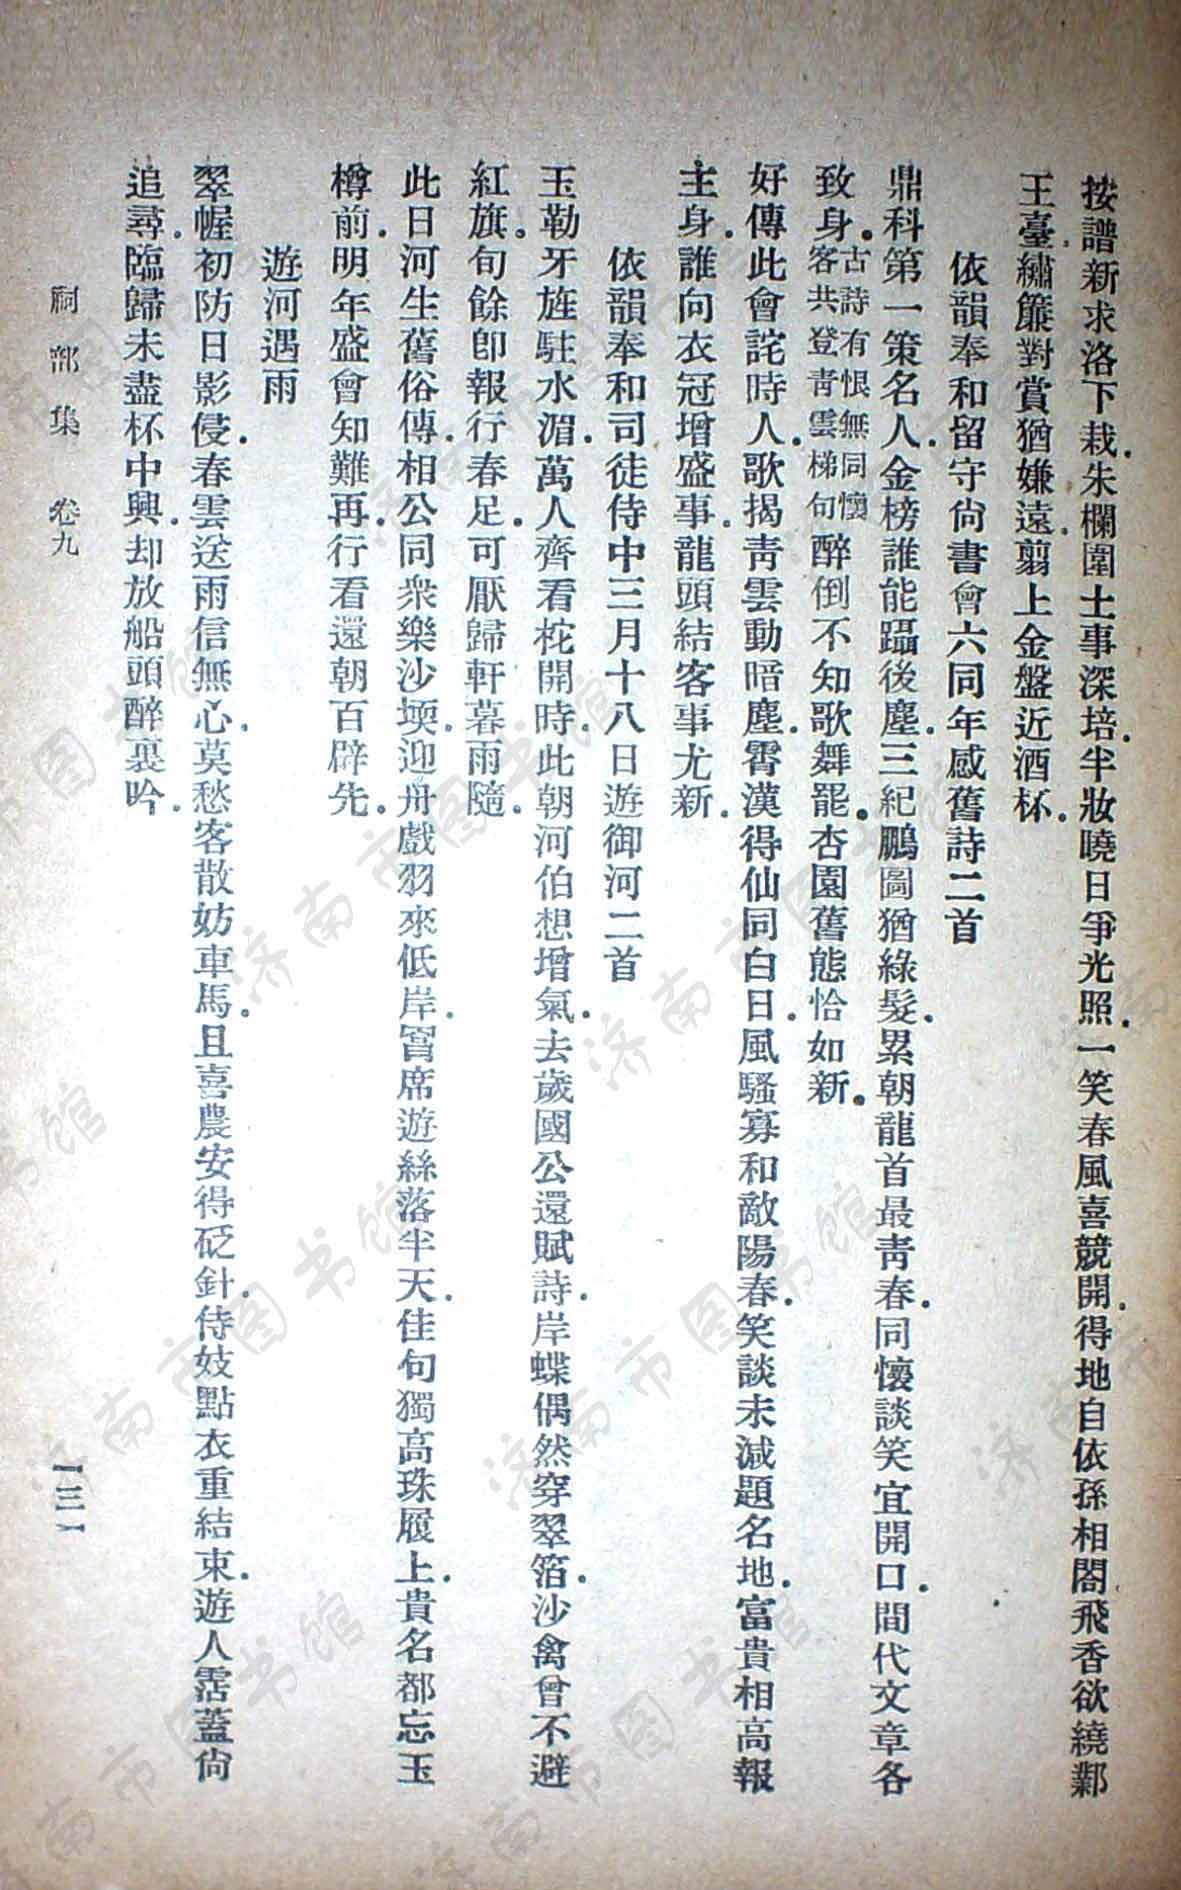 按譜新求洛下栽.朱欄圍土事深培.半妝曉日爭光照.一笑春風喜競開.得地自依孫相閣.飛香欲繞鄴
王臺.繡簾對賞猶嫌遠.翦上金盤近酒杯.
依韻奉和留守尙書會六同年感舊詩二首
鼎科第一策名人.金榜誰能躡後塵.三紀鵬圖猶綠髮.累朝龍首最靑春.同懷談笑宜開口.間代文章各
致身.古詩有恨無同懷客共登靑雲梯句醉倒不知歌舞罷.杏園舊態恰如新.
好傳此會詫時人.歌揭靑雲動暗塵.霄漢得仙同白日.風騷寡和敵陽春.笑談未減題名地.富貴相高報
主身.誰向衣冠增盛事.龍頭結客事尤新.
依韻奉和司徒侍中三月十八日遊御河二首
玉勒牙旌駐水湄.萬人齊看柁開時.此朝河伯想增氣.去歲國公還賦詩.岸蝶偶然穿翠箔.沙禽曾不避
紅旗.旬餘卽報行春足.可厭歸軒暮雨隨.
此日河生舊俗傳.相公同衆樂沙堧.迎舟戲羽來低岸.罥席遊絲落半天.佳句獨高珠履上.貴名都忘玉
樽前.明年盛會知難再.行看還朝百辟先.
遊河遇雨
翠幄初防日影侵.春雲送雨信無心.莫愁客散妨車馬.且喜農安得砭針.侍妓點衣重結束.遊人霑蓋尙
追尋.臨歸未盡杯中興.却放船頭醉裏吟.
祠部集 卷九
【三】
济南市图书馆
济南市图书馆
济南市图书馆
济南市图书馆